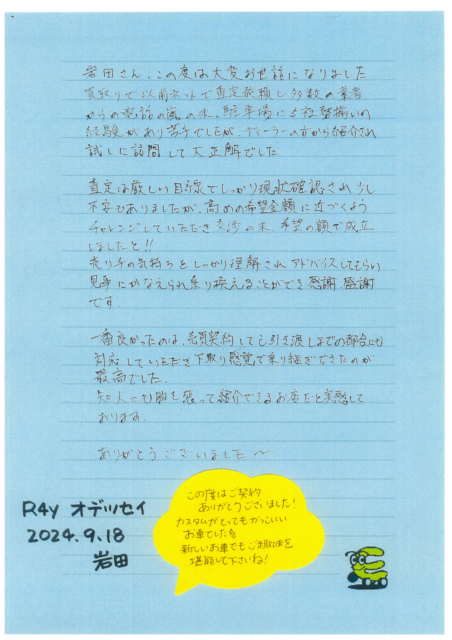 岩田さん、この度は大変お世話になりました
買取りで以前ネットで査定依頼し多数の業者
からの電話の嵐の末、駐車場に5社勢揃いの
経験があり苦手でしたが、ディーラーの方から紹介され
試しに訪問して大正解でした
査定は厳しい目線でしっかり現状確認され少し
不安もありましたが、高めの希望金額に近づくよう
チャレンジしていただき交渉の末、希望の額で成立
しましたと!!
売り手の気持ちをしっかり理解されアドバイスしてもらい
見事にかなえられ乗り換えることができ感謝感謝
です。
一番良かったのは、売買契約しても引き渡しまでの都合にも
対応していただき下取り感覚で乗り継ぎできたのが
最高でした。
知人にも胸を張って紹介できるお店だと実感して
おります。
ありがとうございました〜
R4y オデッセイ
2024.9.18
岩田
この度はご契約
ありがとうございました!
カスタムがとってもかっこいい
お車でした
新しいお車でもご趣味を
堪能して下さいね!